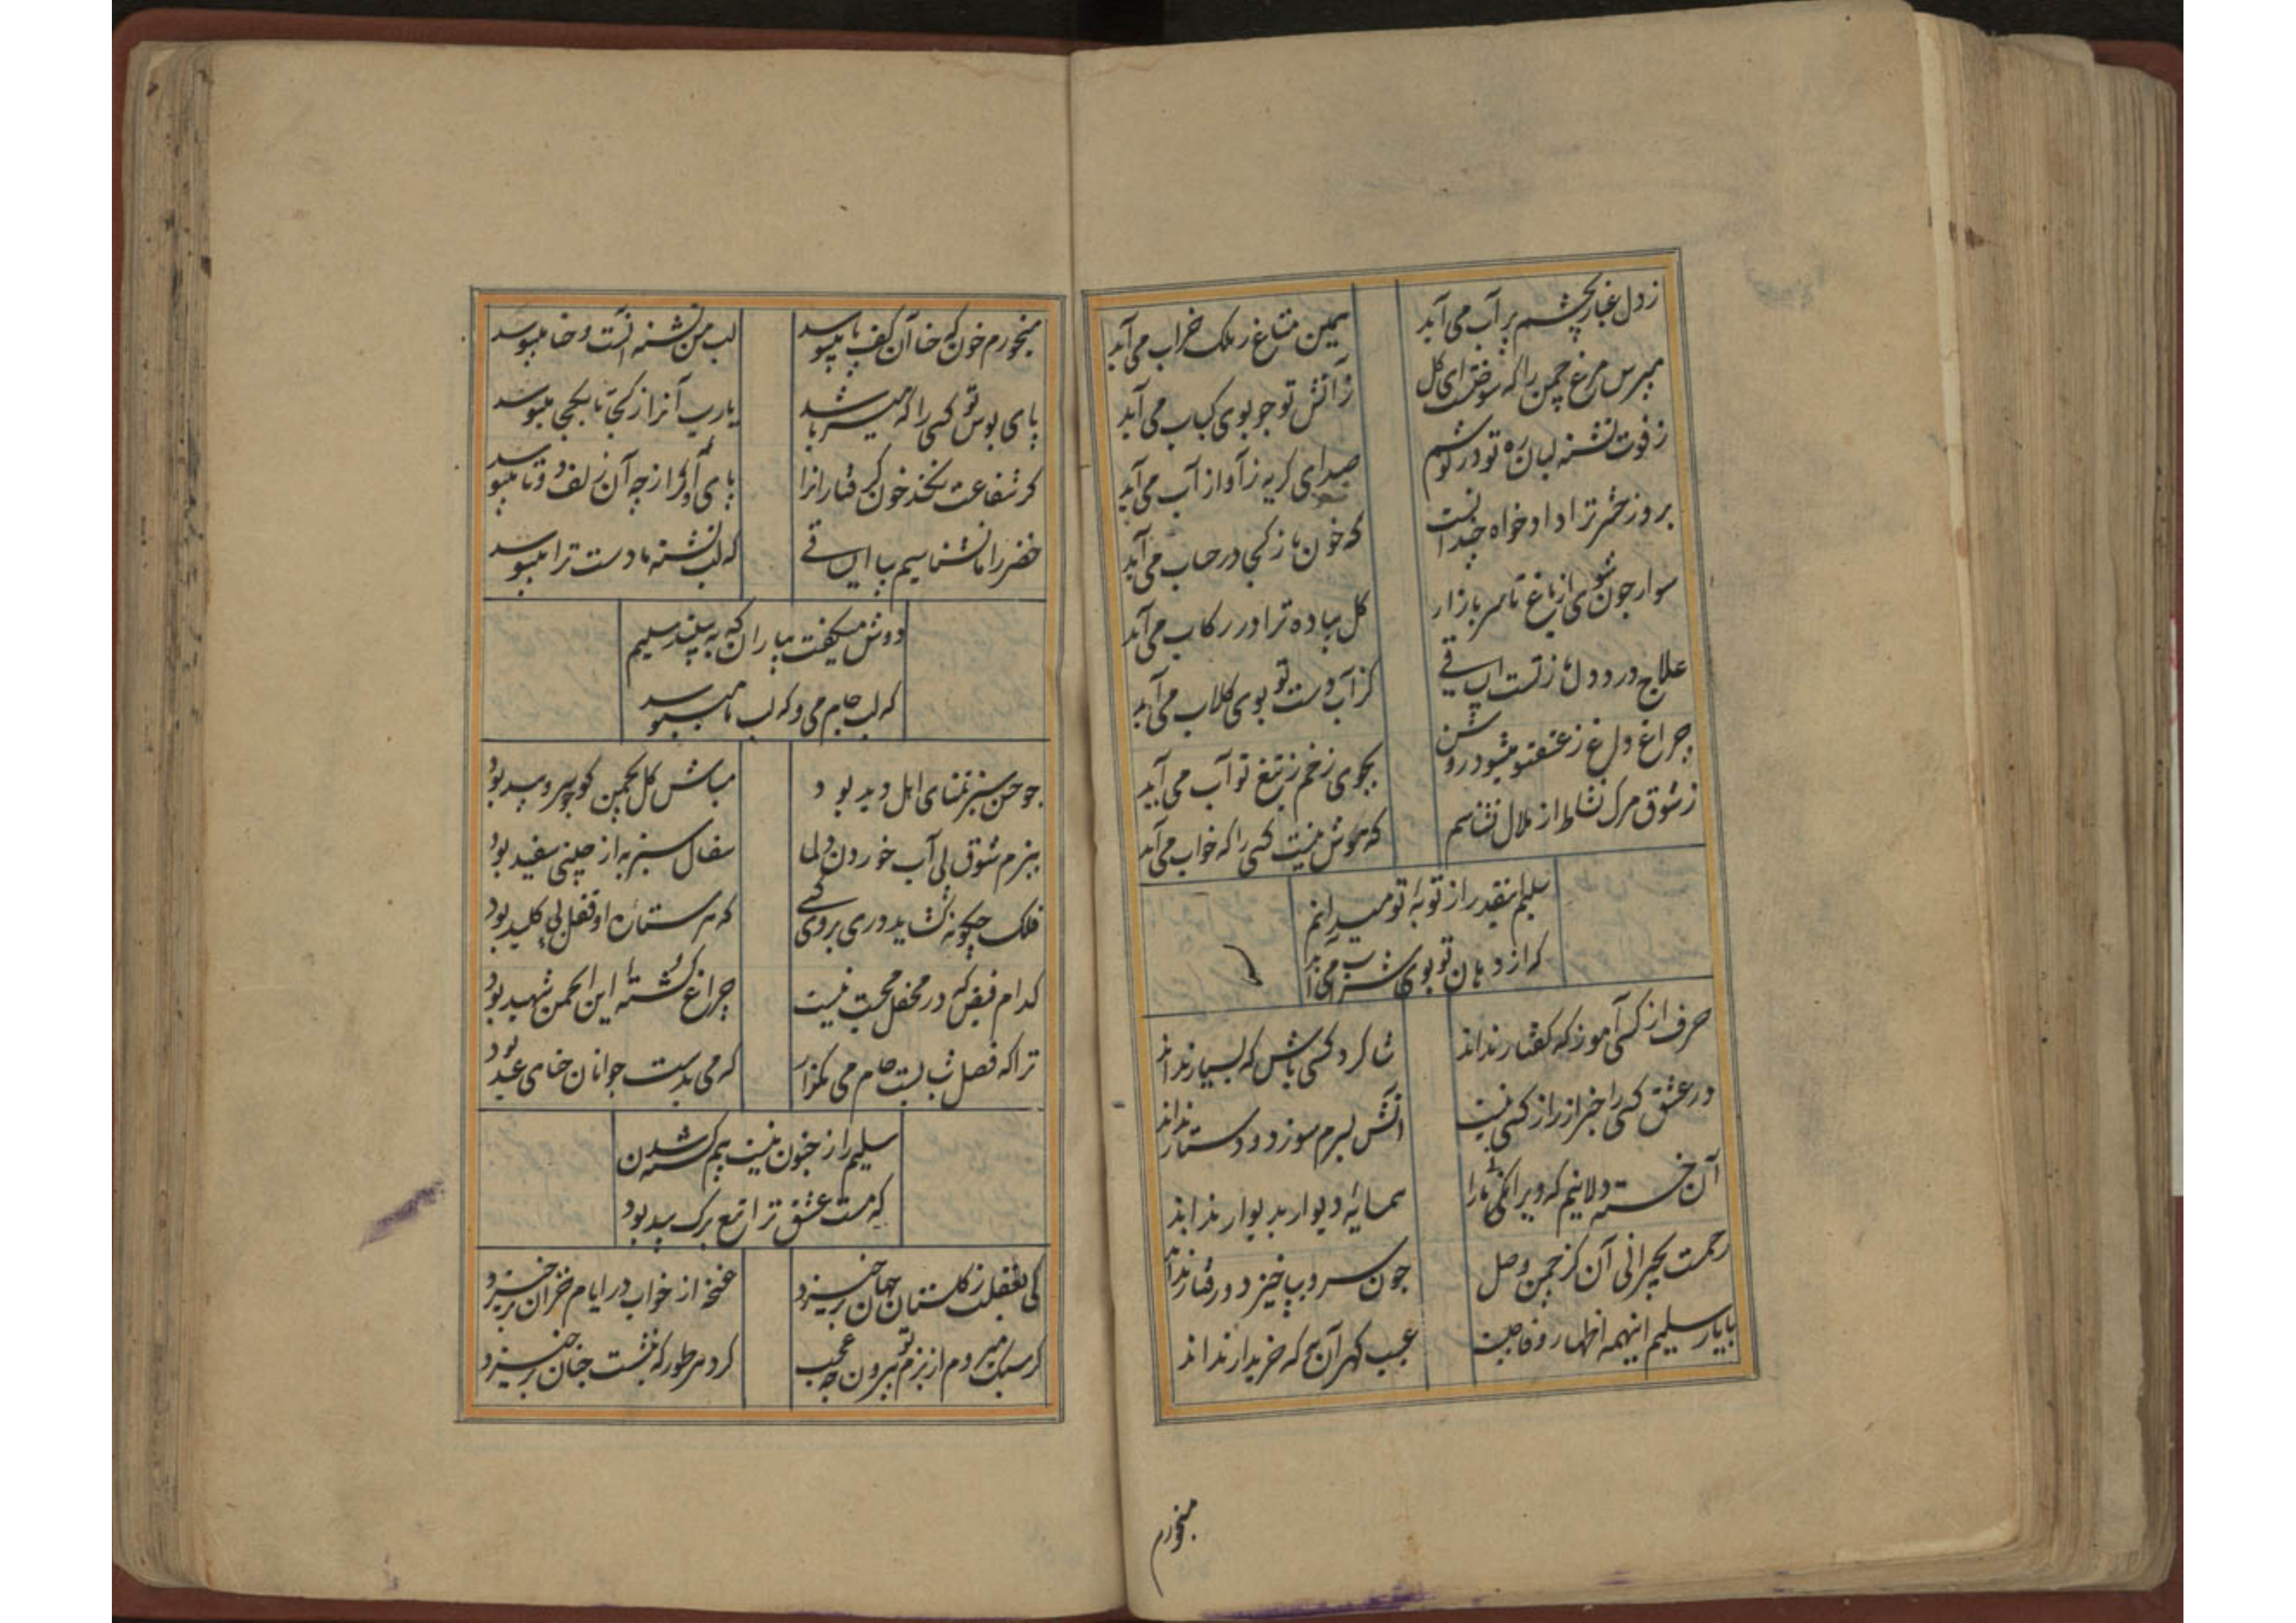 ز دل غبار بچشم پر آب می آید
همین متاع ز ملک خراب می آید
مپرس مرغ چمن را که سوختست ای گل
ز آتش تو چو بوی کباب می آید
ز فوت تشنه لبان ره تو در گوشم
صدای گریه ز آواز آب می آید
بروز حشر ترا دادخواه چندانست
که خون ما ز کجا در حساب می آید
سوار چون شوی از باغ تا سر بازار
گل پیاده ترا در رکاب می آید
علاج درد دل ما ز تست ای ساقی
کز آب دست تو بوی گلاب می آید
چراغ داغ ز عشق تو میشود روشن
بجوی زخم ز تیغ تو آب می آید
ز شوق مرگ نشاط از ملال نشناسم
که هوش نیست کسی را که خواب می آید
سلیم اینقدر از توبهٔ تو میدانم
که از دهان تو بوی شراب می آید
حرف از کسی آموز که گفتار نداند
شاگرد کسی باش که بسیار نداند
در عشق کسی را خبر از راز کسی نیست
آتش بسرم سوزد و دستار نداند
آن خسته دلانیم که ویرانگی ما را
همسایهٔ دیوار بدیوار نداند
رحمت بحیرانی آن کز چمن وصل
چون سرو بپا خیزد و رفتار نداند
با یار سلیم اینهمه اظهار وفا چیست
عیب گهر آن به که خریدار نداند
میخورم
میخورم خون که حنا آن کف پا میبوسد
لب من تشنه آنست و حنا میبوسد
پای بوس تو کسی را که میسر باشد
یارب آنرا ز کجا تا بکجا میبوسد
گر شفاعت نکند خون گرفتارانرا
پای او را ز چه آن زلف دوتا میبوسد
خضر را ما نشناسیم بیا ای ساقی
که لب تشنه ما دست ترا میبوسد
دوش میگفت بیاران که به بینید سلیم
که لب جام می و که لب ما میبوسد
چو حسن سبز تمنای اهل دید بود
مباش گل بچمن گو چو سرو و بید بود
ببزم شوق پی آب خوردن دلها
سفال سبز به از چینی سفید بود
فلک چگونه گشاید دری بروی کسی
که هر ستاره او قفل بی کلید بود
کدام فیض که در محفل محبت نیست
چراغ کشتهٔ این انجمن شهید بود
ترا که فصل شبابست جام می مگذار
که می بدست جوانان حنای عید بود
سلیم را ز جنون نیست بیم کشته شدن
که مست عشق ترا تیغ برگ بید بود
کی بغفلت ز گلستان جهان برخیزد
غنچه از خواب در ایام خزان برخیزد
گر سبک میروم از بزم تو بیرون چه عجب
گرد هر طور که بنشست چنان برخیزد